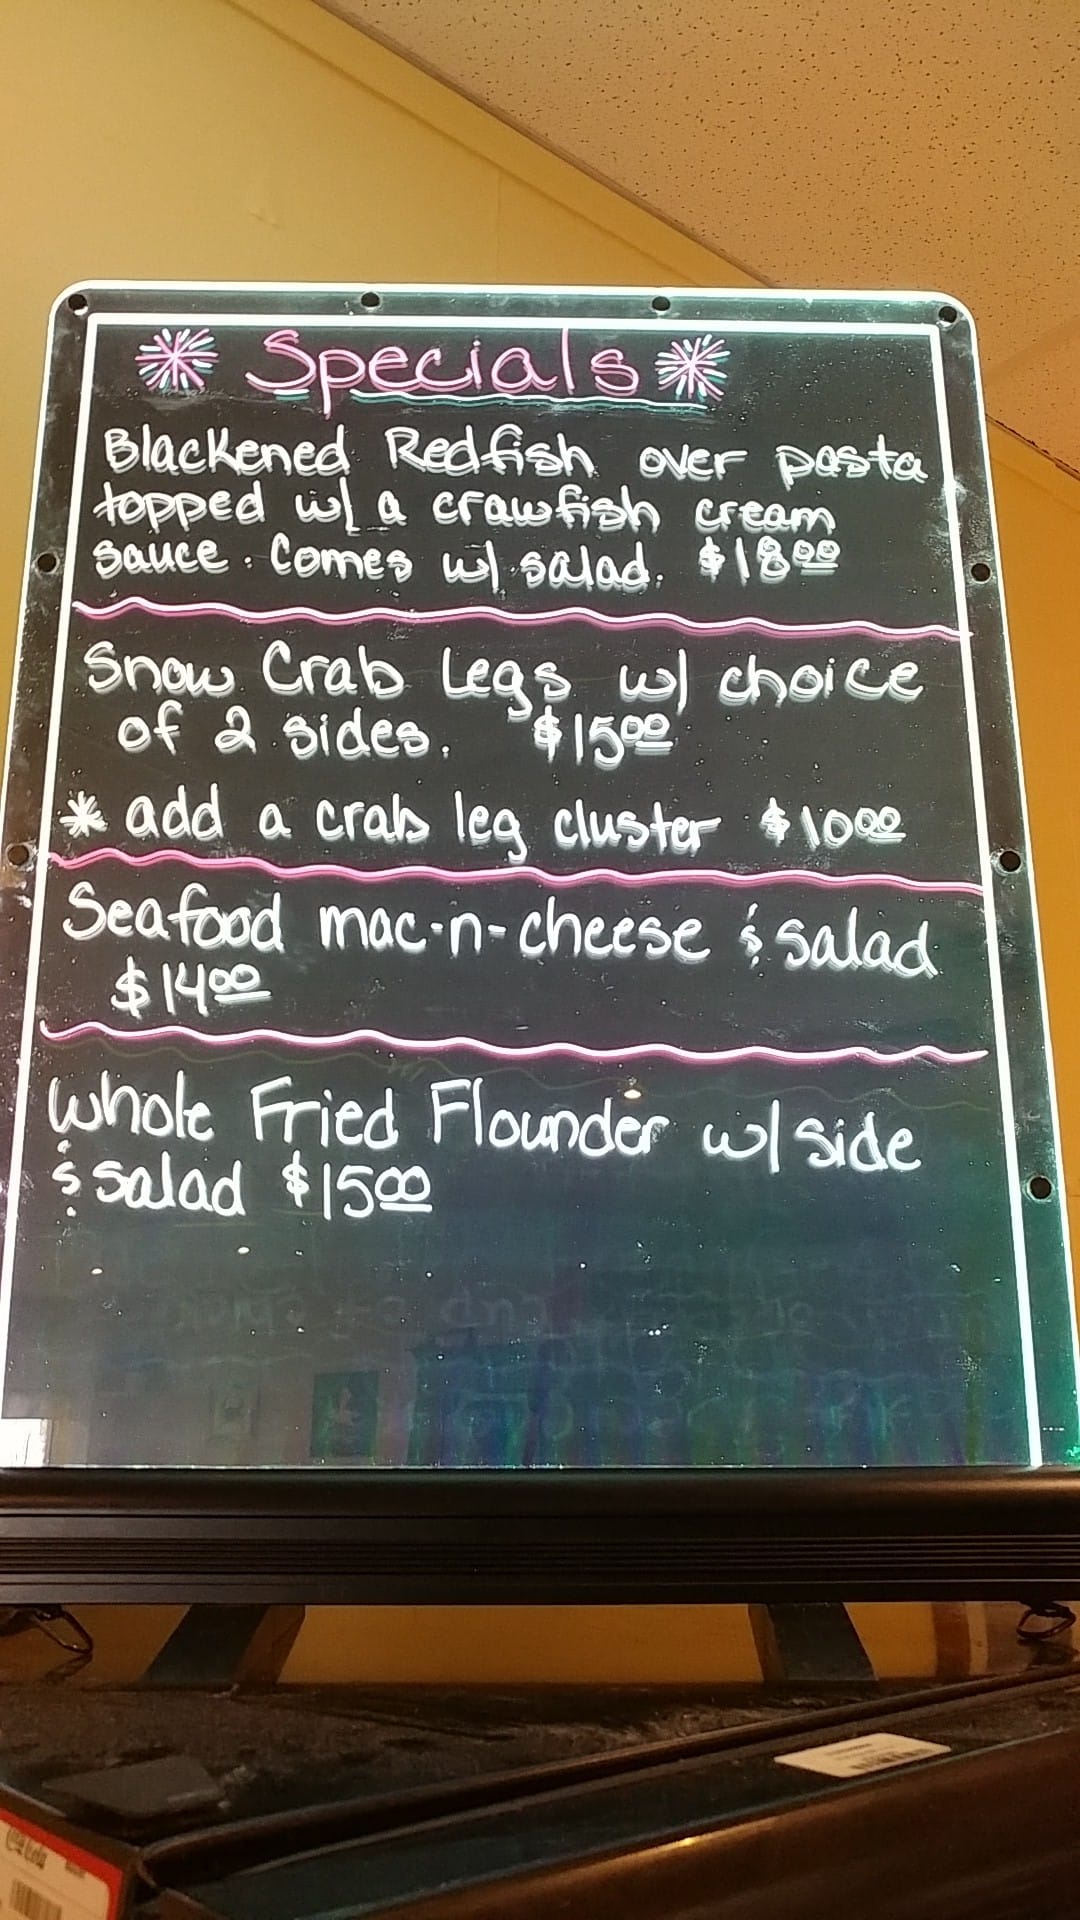 * Specials *
Blackened Redfish over pasta
topped w/ a crawfish cream
sauce. Comes w/ salad. $18.00
Snow Crab Legs w/ choice
of 2 sides. $15.00
* add a crab leg cluster $10.00
Seafood mac-n-cheese & salad
$14.00
Whole Fried Flounder w/ side
& salad $15.00